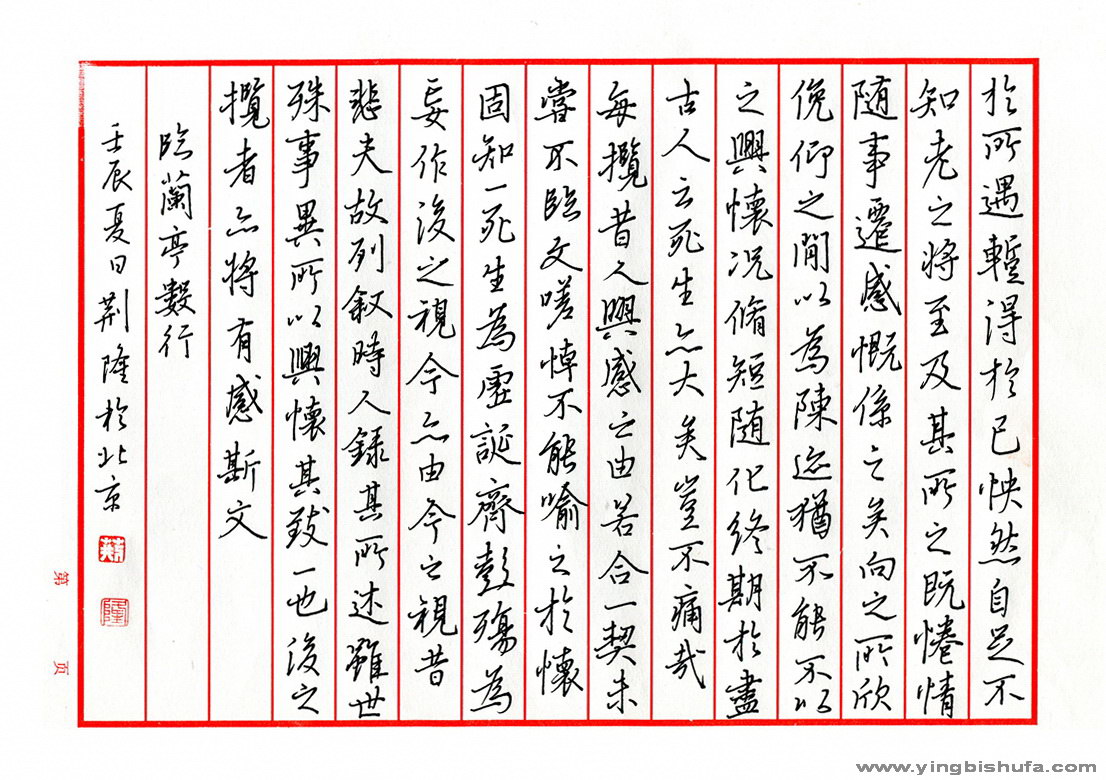 於所遇暫得於己怏然自足不
知老之將至及其所之既惓情
随事遷感慨係之矣向之所欣
俛仰之閒以為陳迹猶不能不以
之興懷况脩短随化終期於盡
古人云死生亦大矣豈不痛哉
每攬昔人興感之由若合一契未
嘗不臨文嗟悼不能喻之於懷
固知一死生為虛誕齊彭殤為
妄作後之視今亦由今之視昔
悲夫故列叙時人錄其所述雖世
殊事異所以興懷其致一也後之
攬者亦將有感斯文
臨蘭亭數行
壬辰夏日荆隆於北京
荆
隆
第 页
www.yingbishufa.com